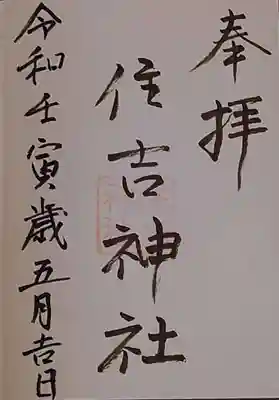 奉拝
住吉神社
令和壬寅歳五月吉日